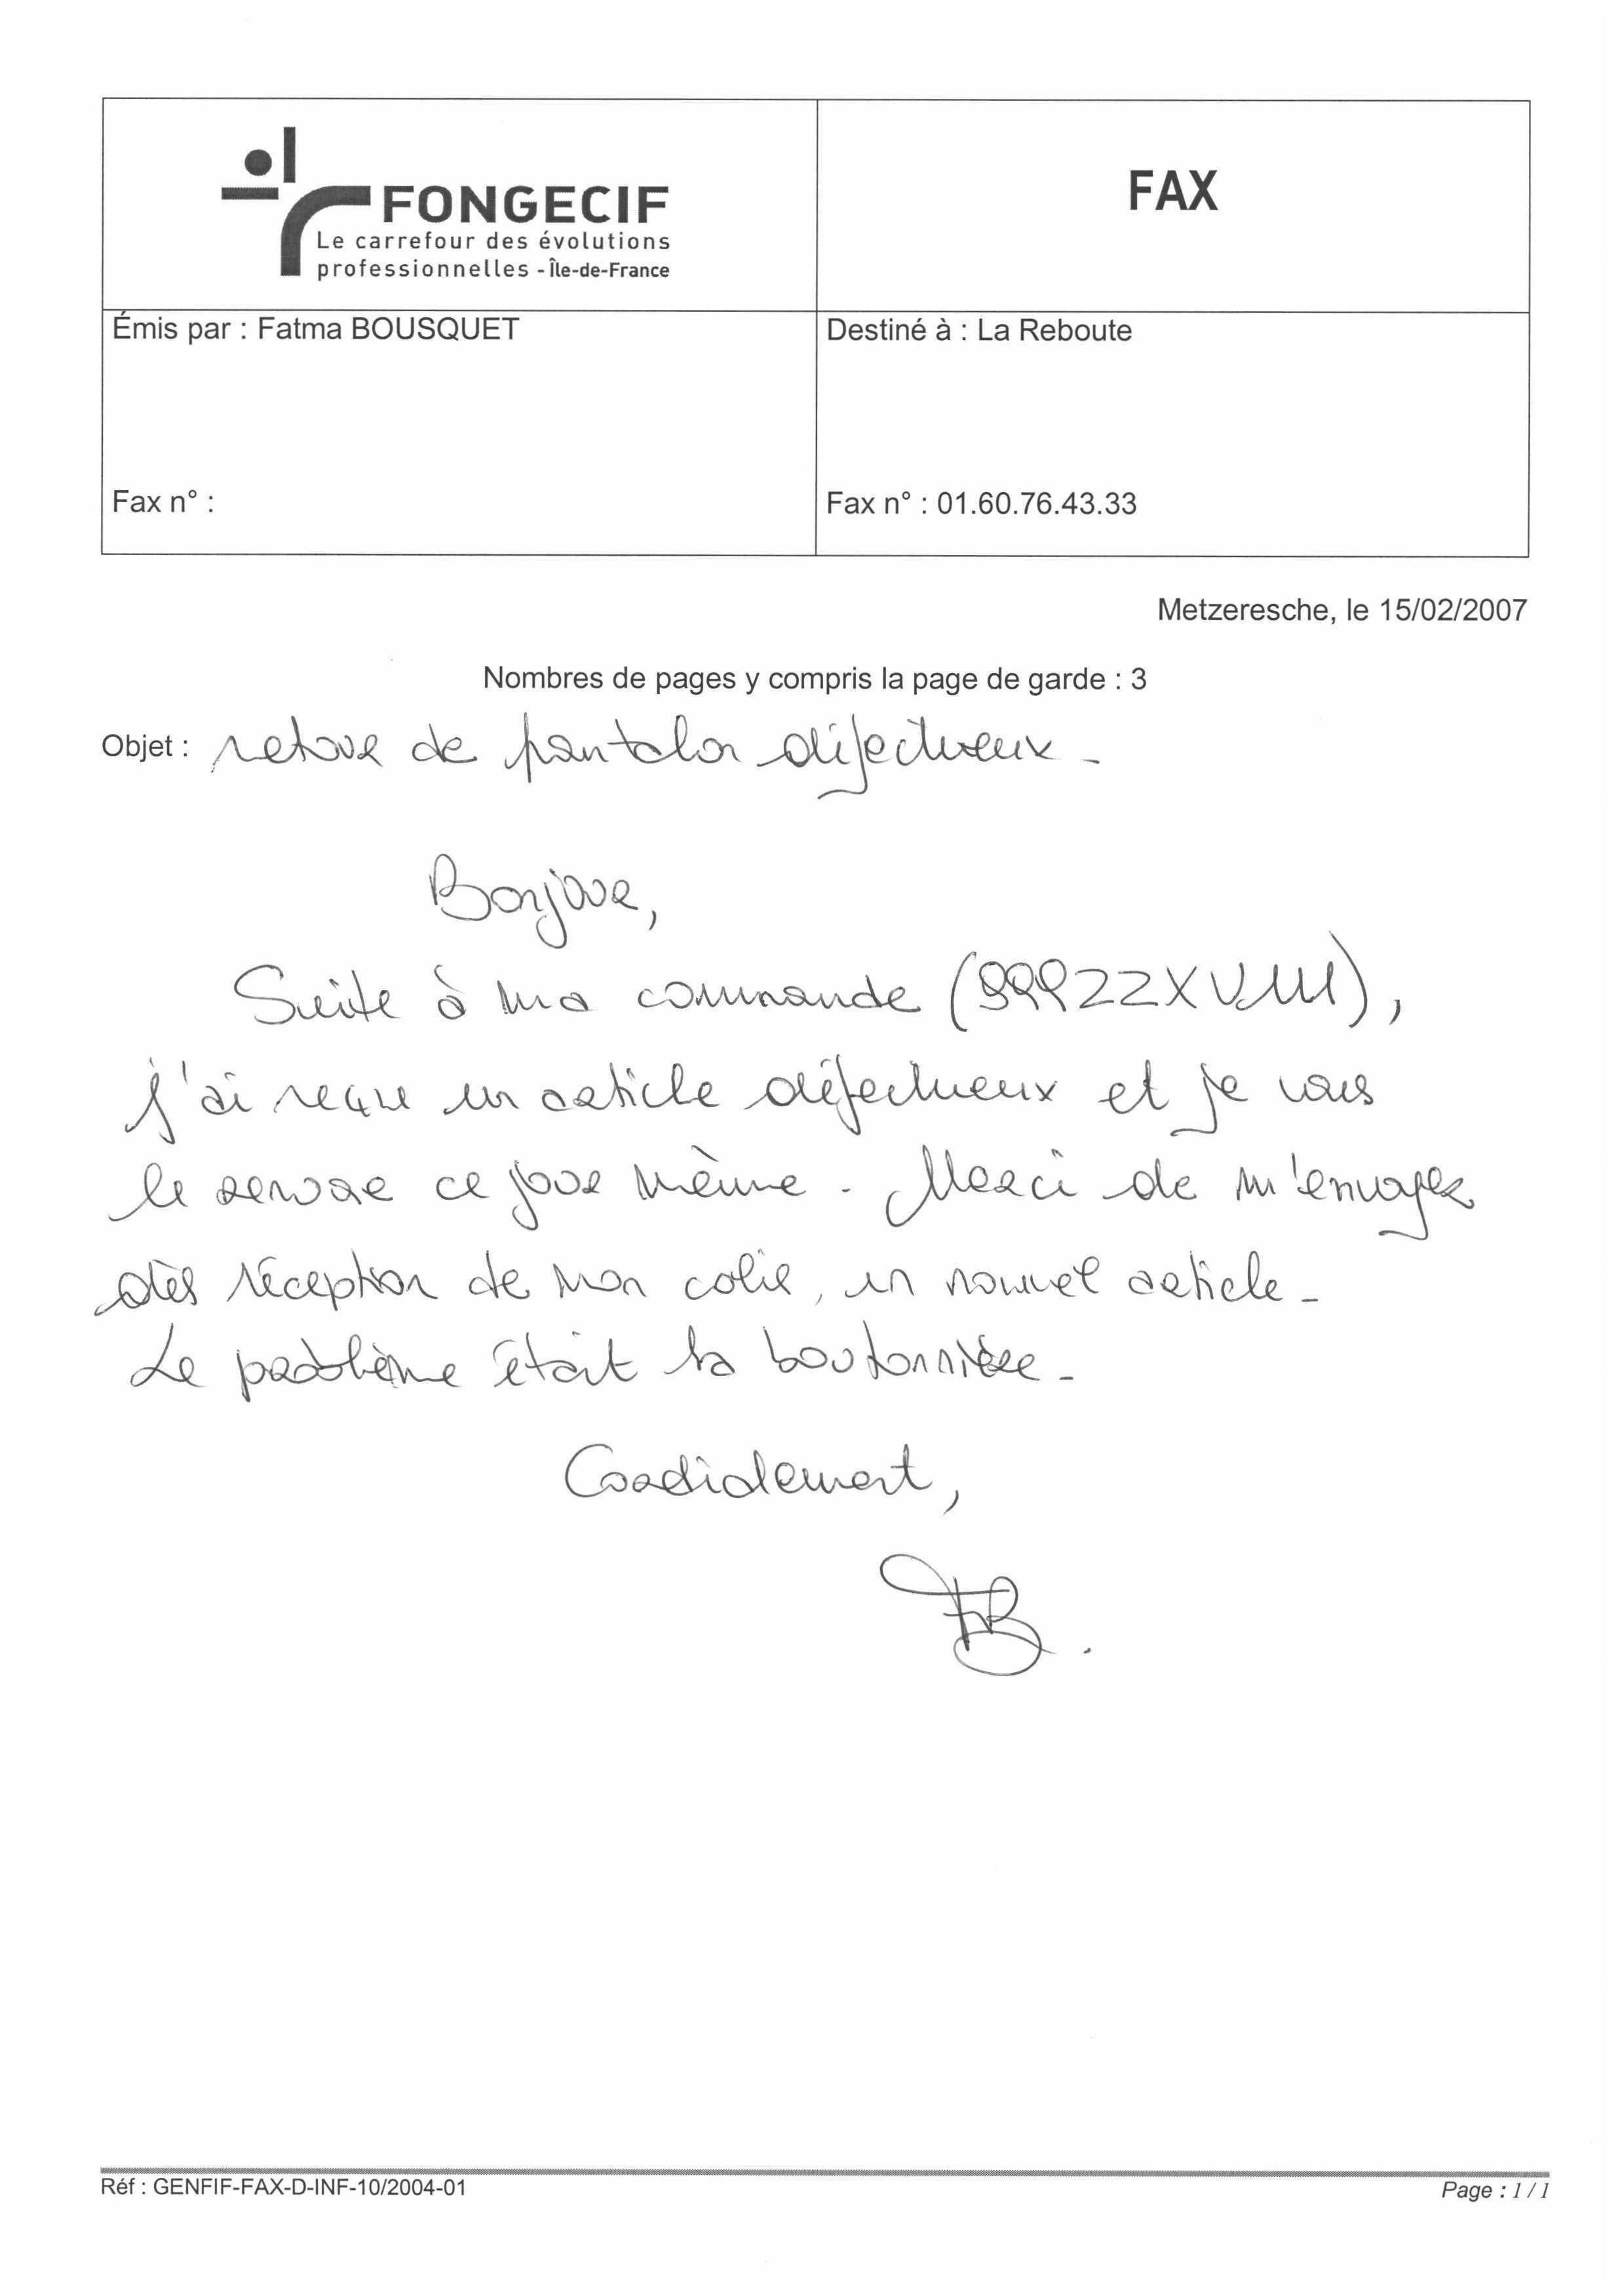 FONGECIF
Le carrefour des évolutions
professionnelles - Île-de-France
FAX
Émis par : Fatma BOUSQUET
Destiné à : La Reboute
Fax n° :
Fax n° : 01.60.76.43.33
Metzeresche, le 15/02/2007
Nombres de pages y compris la page de garde : 3
Objet : retour de pantalon défectueux.
Bonjour,
Suite à ma commande
j'ai reçue un article défectueux et je vous
le renvoie ce jour même. Merci de m'envoyer
dès réception de mon colis, un nouvel article.
Le problème était la boutonnière.
Cordialement,
FB.
Réf : GENFIF-FAX-D-INF-10/2004-01
Page : 1 / 1